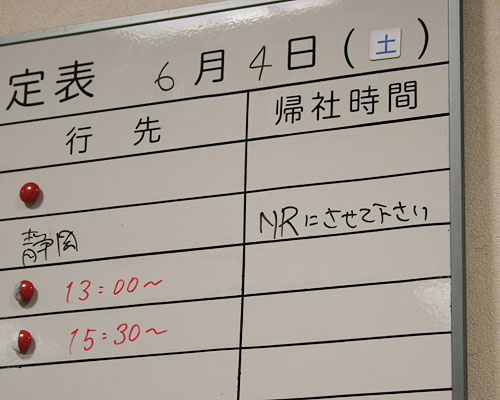 定表 6月4日(土)
行先 帰社時間
静岡 NRにさせて下さい
13:00~
15:30~